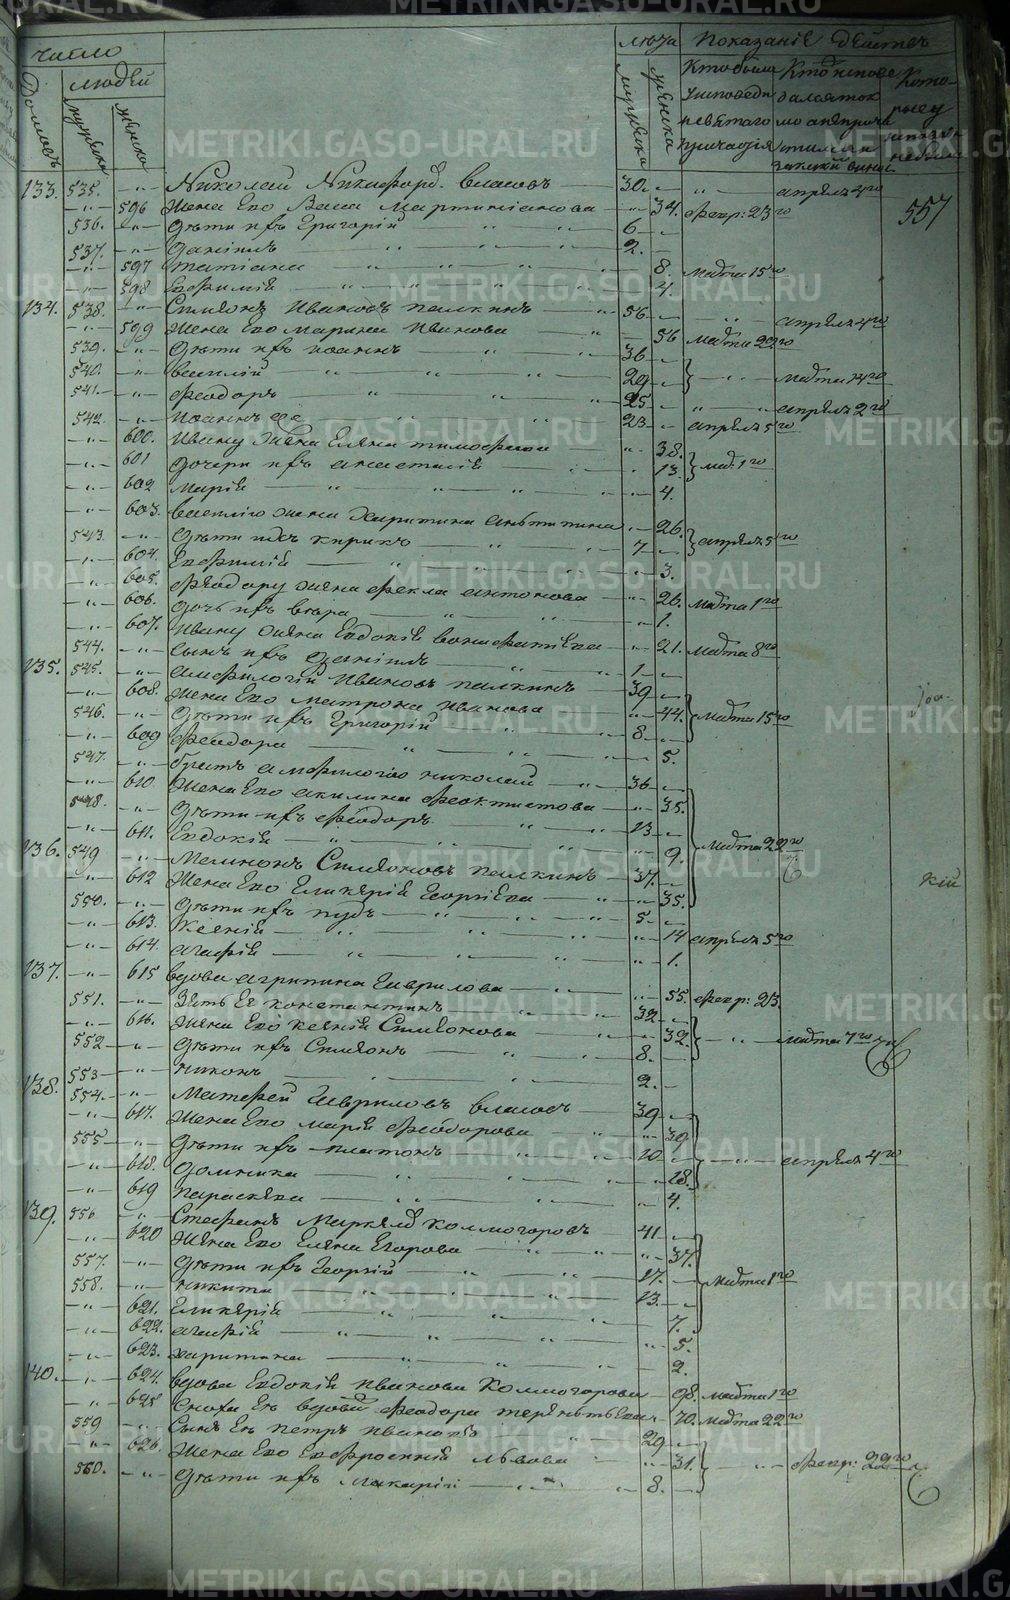 число
лѣта Показаніе дѣйств
Домовъ людей мужеска женска
мужеска женска
133. 535. -"- Николай Никифор. Власовъ 30. -"- -"- апреля 4го
557
-"- 596 Жена Его Васса Мартиніанова -"- 34. февр: 23го
536. -"- Дѣти ихъ Григорій 6 -"-
537. -"- Даніилъ 2. -"-
-"- 597 Татіана -"- 8. марта 15го
-"- 598 Евфимія 4.
134. 538. -"- Симеонъ Ивановъ Палкинъ 56. -"- апреля 4го
-"- 599 Жена Его Марина Иванова -"- 56 марта 22го
539. -"- Дѣти ихъ Иоаннъ 36 -"-
540. -"- Василій 29 -"- марта 14го
541. -"- Феодоръ 25 -"- -"- апреля 2го
542. -"- Иоаннъ 23 -"- апреля 5го
-"- 600. Ивану Жена Елена Тимофеева -"- 38.
-"- 601 Дочери ихъ Анастасія -"- 13. мар. 1го
-"- 602 Марія -"- 4.
-"- 603. Василію жена Харитина -"- 26.
543. -"- Дѣти ихъ Кирикъ 7 -"- апреля 5го
-"- 604. Евфимія -"- 3.
-"- 605. Феодору жена Фекла Антонова -"- 26. марта 1го
-"- 606. Дочь ихъ Вѣра -"- 1.
-"- 607. Ивану жена Евдокія -"- 21. марта 8го
544. -"- Сынъ ихъ Даніилъ 1 -"-
135. 545. -"- Амфилогій Ивановъ Палкинъ 39 -"-
-"- 608. Жена Его Матрона Иванова -"- 44. марта 15го
546. -"- Дѣти ихъ Григорій 8 -"-
-"- 609 Феодора -"- 5.
547. -"- Братъ Амфилогію Николай 36 -"-
-"- 610. Жена Его Акилина Феоктистова -"- 35.
548. -"- Дѣти ихъ Феодоръ 13 -"-
-"- 611. Евдокія -"- 9. марта 22го
136. 549 -"- Симеоновъ Палкинъ 37. -"-
кій
-"- 612 Жена Его Гликерія Георгіева -"- 35.
550. -"- Дѣти ихъ Іудъ 5 -"-
-"- 613. Ксенія -"- 14 апреля 5го
-"- 614. Агафія -"- 1.
137. -"- 615 вдова Агрипина Гаврилова -"- 55. февр: 23.
551. -"- Зять Ея Константинъ 32 -"-
-"- 616. Жена Его Ксенія Симеонова -"- 32. -"- марта 7го
552 -"- Дѣти ихъ Симеонъ 8. -"-
553 -"- Никонъ 2. -"-
138. 554. -"- Матфей Гавриловъ Власовъ 39 -"-
-"- 617. Жена Его Марія Феодорова -"- 39
555 -"- Дѣти ихъ Платонъ 10 -"- -"- апреля 4го
-"- 618. Домника -"- 18.
-"- 619 Параскева -"- 4.
139. 556 -"- Стефанъ Маркел. Колмогоровъ 41 -"-
-"- 620 Жена Его Елена Егорова -"- 37.
557. -"- Дѣти ихъ Георгій 17. -"- марта 1го
558. -"- Никита 13. -"-
-"- 621. Гликерія -"- 7.
-"- 622. Агафія -"- 5.
-"- 623. Харитина -"- 2.
140. -"- 624. вдова Евдокія Иванова Колмогорова -"- 98. марта 1го
-"- 625 Сноха Ея вдова Феодора Терентьева -"- 70. марта 22го
559 -"- Сынъ Ея Петръ Ивановъ 29 -"-
-"- 626. Жена Его Евфросинія Львова -"- 31. -"- февр: 22го
560. -"- Дѣти ихъ Макарій -"- 8. -"-
METRIKI.GASO-URAL.RU